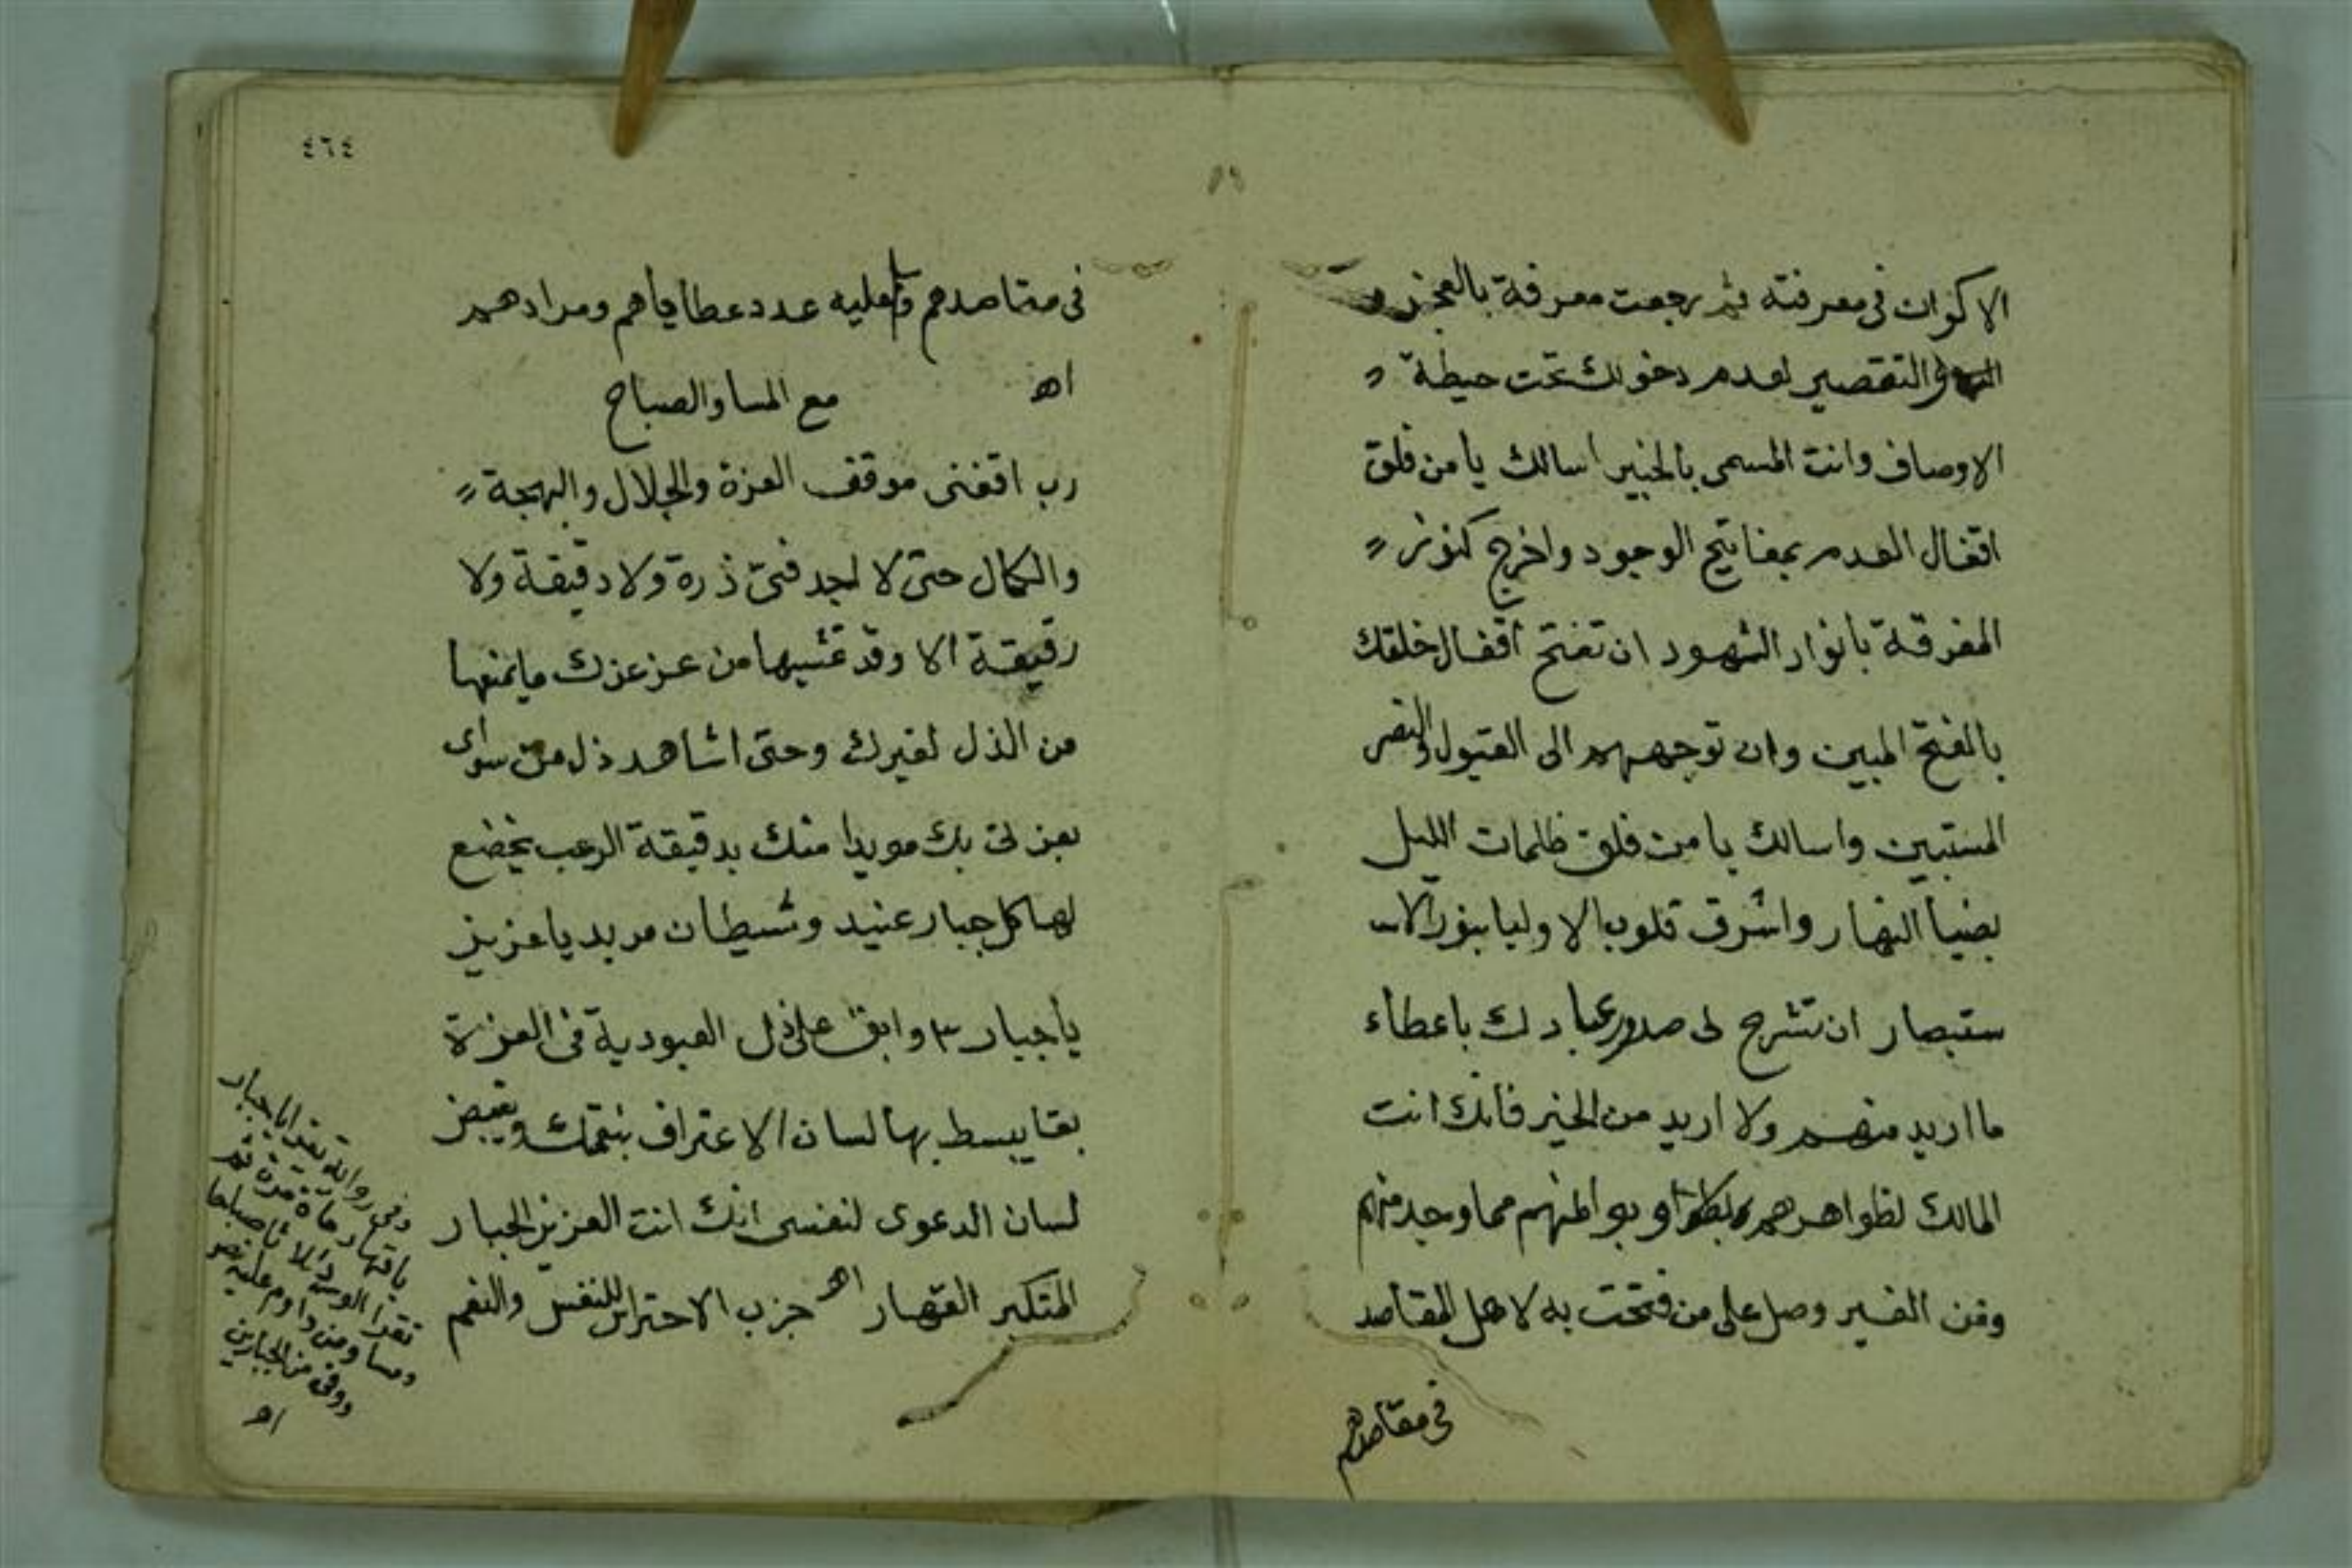 الاكوان فى معرفته ثم رجعت معرفة بالعجز
والتقصير لعدم دخولك تحت حيطة
الاوصاف وانت المسمى بالخبير اسالك يا من فلق
اقفال العدم بمفاتيح الوجود واخرج كنوز
المفرقة بانوار الشهود ان تفتح اقفال خلقك
بالفتح المبين وان توجههم الى القبول والنصر
المستبين واسالك يا من فلق ظلمات الليل
بضيا النهار واشرق قلوب الاوليا بنور الا
ستبصار ان تشرح لى صدور عبادك باعطاء
ما اريد منهم ولا اريد من الخير فانك انت
المالك لظواهرهم وبواطنهم مما وجد منهم
ومن الغير وصل على من فتحت به لاهل المقاصد
فى مقاصدهم
٤٦٤
فى مقاصدهم وعليه عدد عطاياهم ومرادهم
اهـ مع المسا والصباح
رب اقفنى موقف العزة والجلال والبهجة
والكمال حتى لا اجد فىّ ذرة ولا دقيقة ولا
رقيقة الا وقد غشيها من عز عزك ما يمنعها
من الذل لغيرك وحتى اشاهد ذل من سواى
بعزتى بك مويدا منك بدقيقة الرعب يخضع
لها كل جبار عنيد وشيطان مريد يا عزيز
يا جبار ٣ وابق على ذل العبودية فى العزة
بقا يبسط بها لسان الاعتراف ويقبض
لسان الدعوى لنفسى انك انت العزيز الجبار
المتكبر القهار اهـ حزب الاحتراس للنفس والنعم
وفى رواية تقرا يا جبار
يا قهار مرة ثم
تقرا صباحا
ومسا ومن داوم عليه نصر
ووقى من الجبارين
اهـ